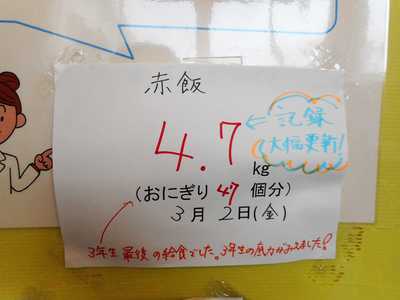 赤飯
4.7 kg
←記録
大幅更新!
(おにぎり 47 個分)
3月 2日(金)
3年生 最後の給食でした。3年生の底力がみえました!